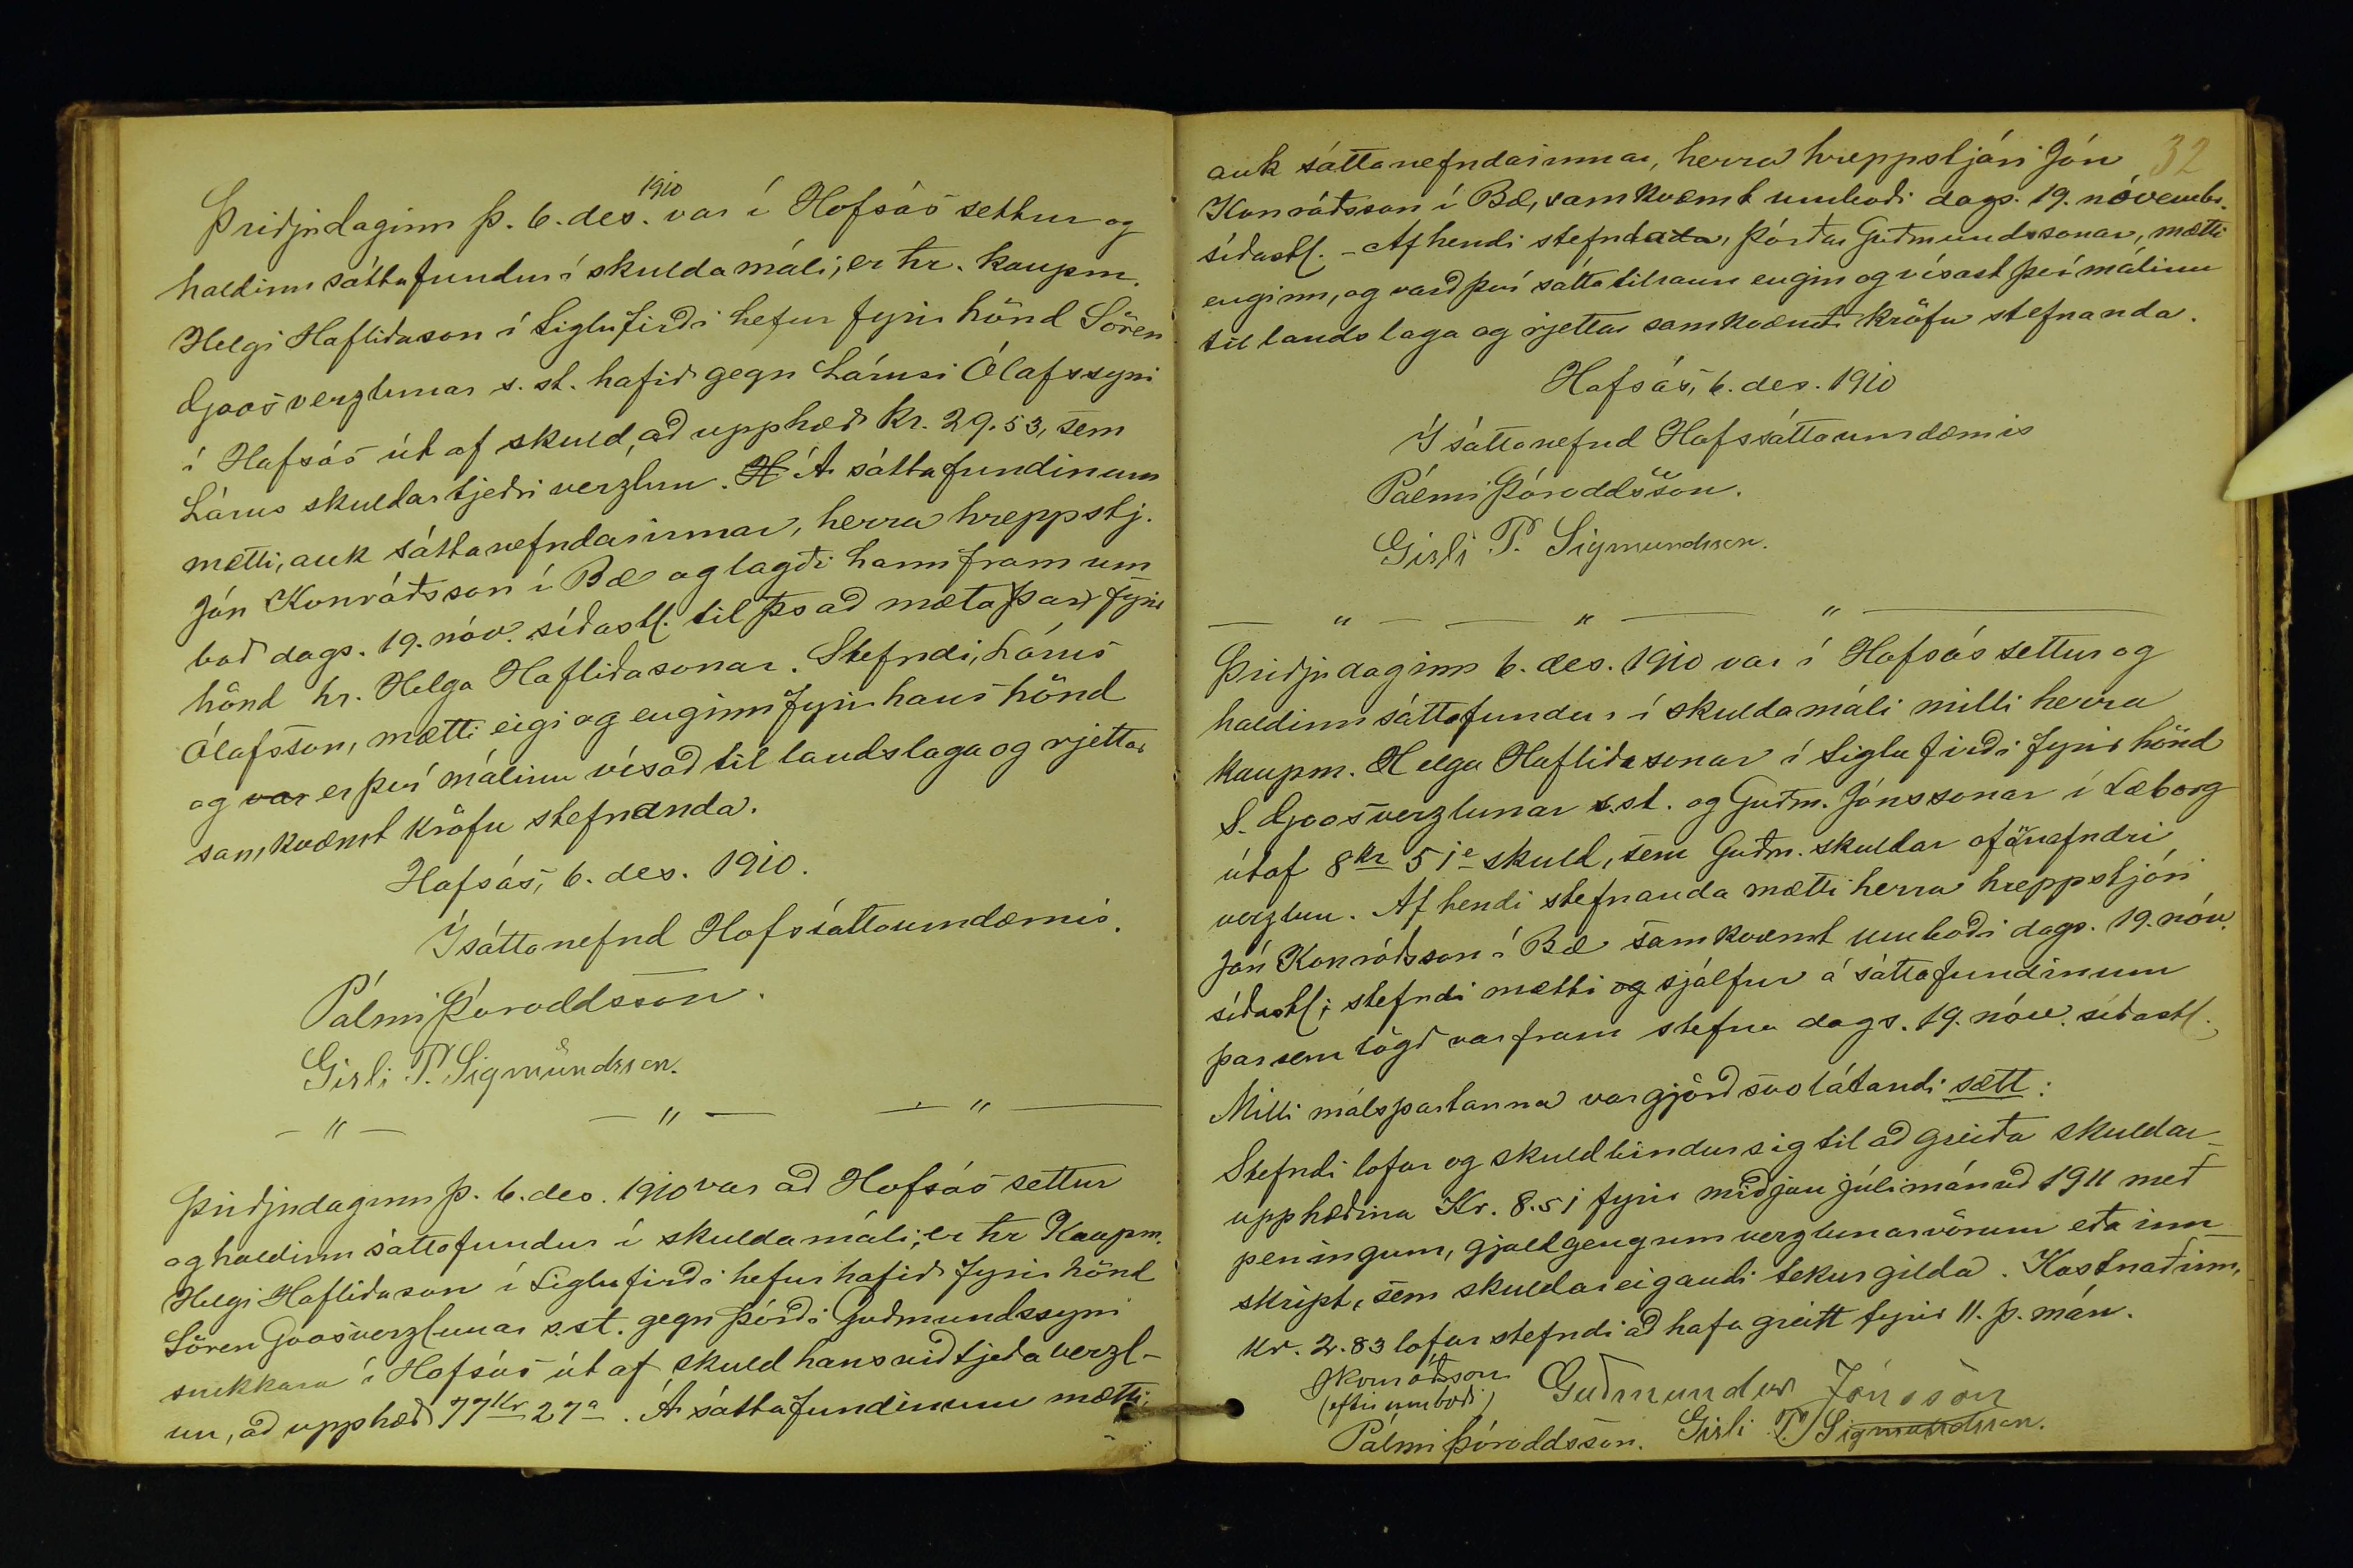 Þriðjudaginn þ. 6. des. 1910 var í Hofsós settur og
haldinn sáttafundur í skuldamáli, er hr. kaupm.
Helgi Hafliðason í Siglufirði hefur fyrir hönd Sören
Goos verzlunar s. st. hafið gegn Lárusi Ólafssyni
í Hofsós út af skuld, að upphæð kr. 29.53, sem
Lárus skuldar tjeðri verzlun. H Á sáttafundinum
mætti, auk sáttanefndarinnar, herra hreppstj.
Jón Konráðsson í Bæ og lagði hann fram um
boð dags. 19. nóv. síðastl. til þs að mæta þar fyrir
hönd hr. Helga Hafliðasonar. Stefndi, Lárus
Ólafsson, mætti eigi og enginn fyrir hans hönd
og var er því málinu vísað til landslaga og rjettar
samkvæmt kröfu stefnanda.
Hofsós, 6. des. 1910.
Í sáttanefnd Hofssáttaumdæmis.
Pálmi Þóroddsson.
Gísli Þ. Sigmundsson.
— " — — " — — " —
Þriðjudaginn þ. 6. des. 1910 var að Hofsós settur
og haldinn sáttafundur í skuldamáli, er hr Kaupm.
Helgi Hafliðason í Siglufirði hefur hafið fyrir hönd
Sören Goos verzlunar s.st. gegn Þórði Guðmundssyni
snikkara í Hofsós út af skuld hans við tjeða verzl-
un, að upphæð 77 kr 27 a. Á sáttafundinum mætti,
32
auk sáttanefndarinnar, herra hreppstjóri Jón
Konráðsson í Bæ, samkvæmt umboði dags. 19. nóvembr.
síðastl. - Af hendi stefndada, Þórðar Guðmundssonar, mætti
enginn, og varð því sáttatilraun engin og vísast því málinu
til landslaga og rjettar samkvæmt kröfu stefnanda.
Hofsós, 6. des. 1910
Í sáttanefnd Hofssáttaumdæmis
Pálmi Þóroddsson.
Gísli Þ. Sigmundsson.
— " — — " — " —
Þriðjudaginn 6. des. 1910 var í Hofsós settur og
haldinn sáttafundur í skuldamáli milli herra
kaupm. Helga Hafliðasonar í Siglufirði fyrir hönd
S. Goos verzlunar s.st. og Guðm. Jónssonar í Læborg
út af 8 kr 51 e skuld, sem Guðm. skuldar ofannefndri
verzlun. Af hendi stefnanda mætti herra hreppstjóri
Jón Konráðsson í Bæ samkvæmt umboði dags. 19. nóv.
síðastl; stefndi mætti og sjálfur á sáttafundinum
þar sem lögð var fram stefna dags. 19. nóv. síðastl.
Milli málspartanna var gjörð svolátandi sætt:
Stefndi lofar og skuldbindur sig til að greiða skuldar-
upphæðina Kr. 8.51 fyrir miðjan júlimánuð 1911 með
peningum, gjaldgengum verzlunarvörum eða inn-
skript, sem skuldareigandi tekur gilda. Kostnaðinn,
kr. 2.83 lofar stefndi að hafa greitt fyrir 11. þ. mán.
J Konráðsson
(eftir umboði) Guðmundur Jónsson
Pálmi Þóroddsson. Gísli Þ. Sigmundsson.